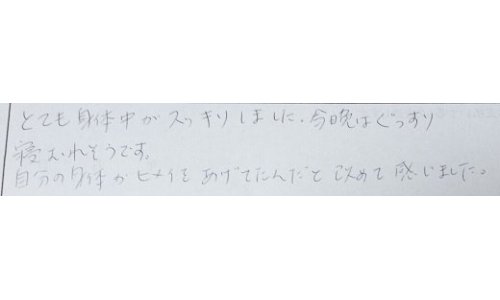 とても身体中がスッキリしました.今晩はぐっすり
寝むれそうです。
自分の身体がヒメイをあげてたんだと改めて感じました。